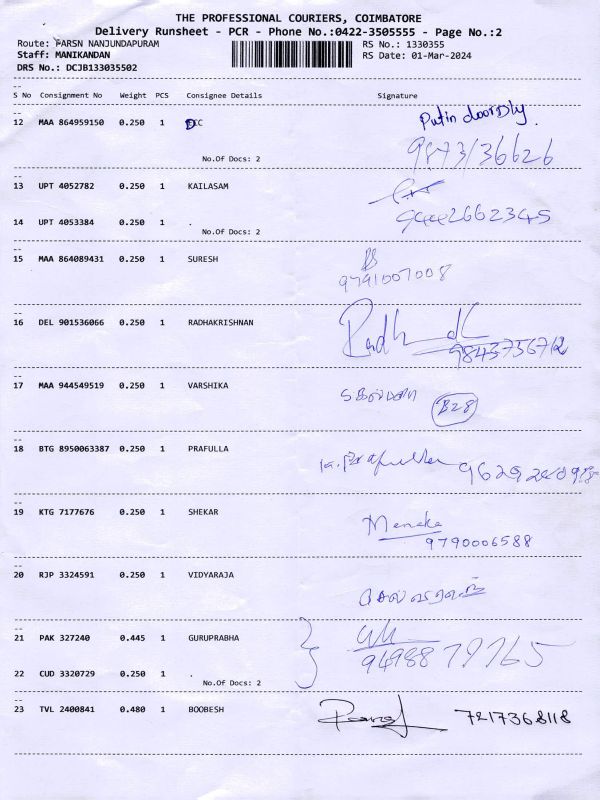 THE PROFESSIONAL COURIERS, COIMBATORE
Delivery Runsheet - PCR - Phone No.:0422-3505555 - Page No.:2
Route: PARSN NANJUNDAPURAM RS No.: 1330355
Staff: MANIKANDAN RS Date: 01-Mar-2024
DRS No.: DCJB133035502
S No Consignment No Weight PCS Consignee Details Signature
12 MAA 864959150 0.250 1 Putin doorDly.
No.Of Docs: 2 9873136626
13 UPT 4052782 0.250 1 KAILASAM
14 UPT 4053384 0.250 1 . 9442662345
No.Of Docs: 2
15 MAA 864089431 0.250 1 SURESH
9791007008
16 DEL 901536066 0.250 1 RADHAKRISHNAN
17 MAA 944549519 0.250 1 VARSHIKA
B28
18 BTG 8950063387 0.250 1 PRAFULLA K. Prafulla
19 KTG 7177676 0.250 1 SHEKAR Menaka
9790006588
20 RJP 3324591 0.250 1 VIDYARAJA
21 PAK 327240 0.445 1 GURUPRABHA
9498879765
22 CUD 3320729 0.250 1 .
No.Of Docs: 2
23 TVL 2400841 0.480 1 BOOBESH 7217368118